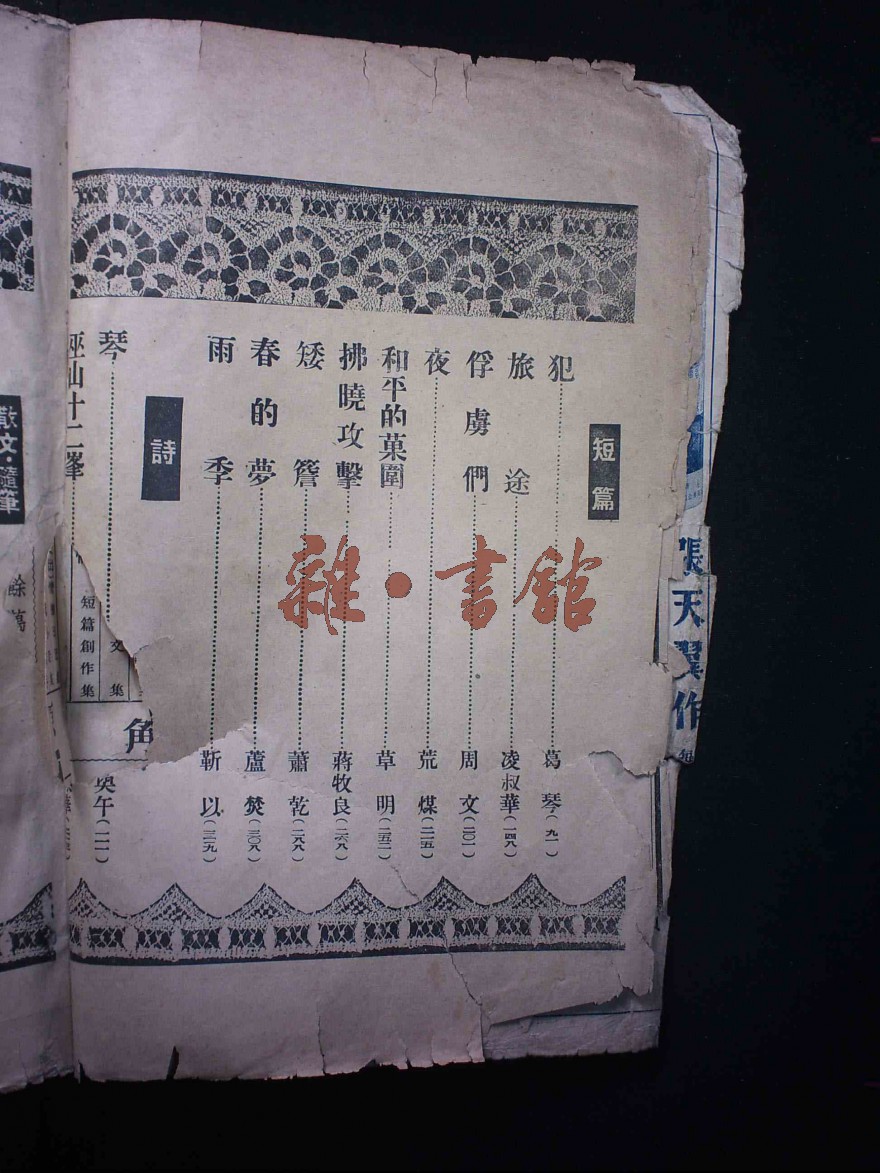 短篇
犯 葛琴(九一)
旅途 凌叔華(一四八)
俘虜們 周文(二〇一)
夜 荒煤(二二五)
和平的菓園 草明(二五二)
拂曉攻擊 蔣牧良(二六八)
矮簷 蕭乾(二八八)
春的夢 蘆焚(三〇八)
雨季 靳以(三二九)
詩
琴
午(二一)
巫山十二峯
散文·隨筆
短篇創作集
文集
角
餘
張天翼作
雜·書館